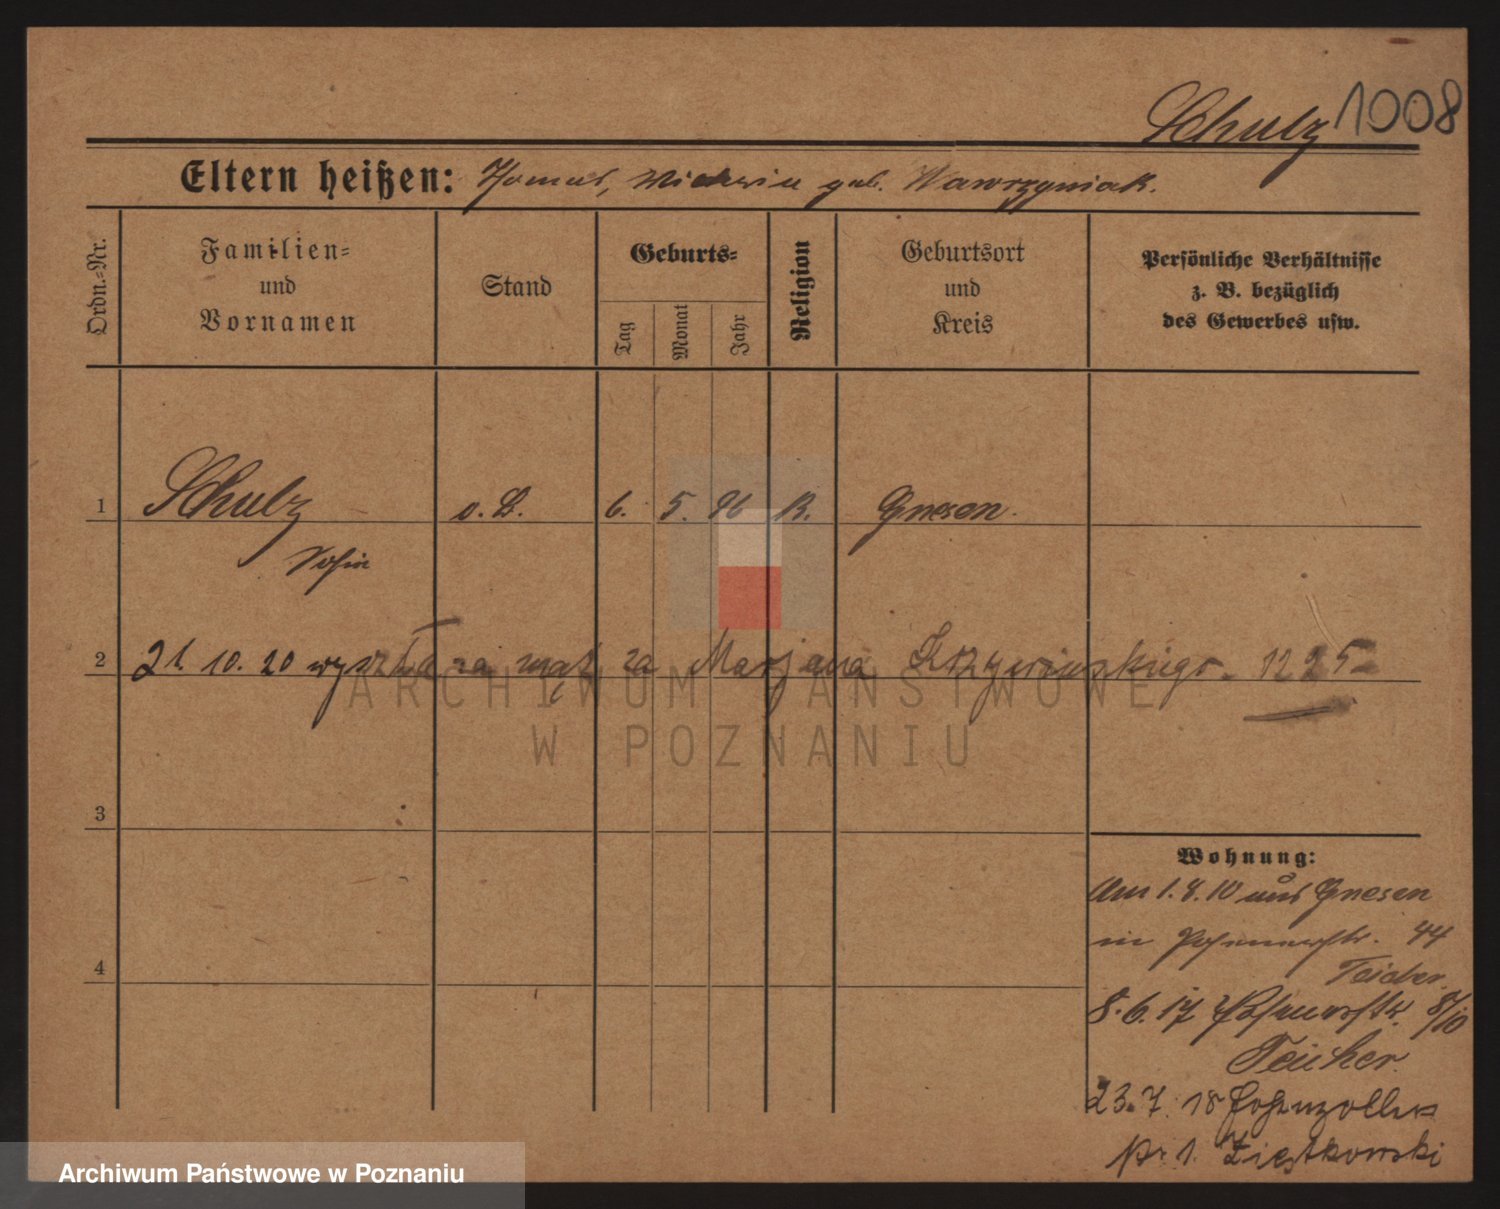 Schulz 1008
Eltern heißen: Thomas, Wiktoria geb. Wawrzyniak.
Ordn.-Nr.
Familien-
und
Vornamen
Stand
Geburts-
Tag
Monat
Jahr
Religion
Geburtsort
und
Kreis
Persönliche Verhältnisse
z. B. bezüglich
des Gewerbes usw.
1 Schulz o. B. 6. 5. 96 K. Gnesen.
Sofie
2 21. 10. 20 wyszła za mąż za Marjana 1225
ARCHIWUM PAŃSTWOWE
W POZNANIU
3
4
Wohnung:
Am 1.8.10 aus Gnesen
in Posenerstr. 44
Teicher
8.6.17 Posenerstr. 8/10
Teicher.
23.7.18 Hohenzollern
pr. 1. Ziętkowski
Archiwum Państwowe w Poznaniu